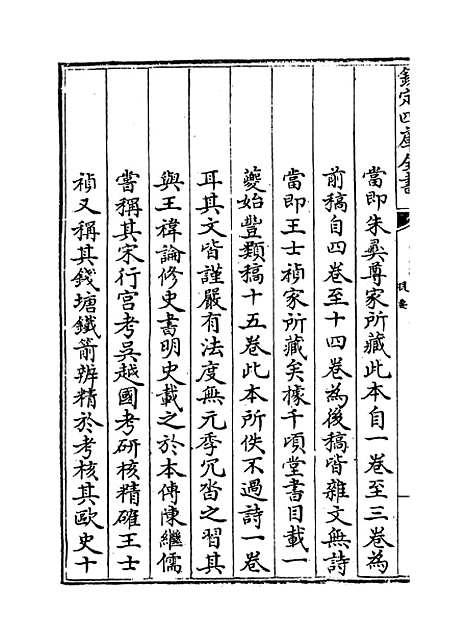 欽定四庫全書
提要
當即朱彞尊家所藏此本自一卷至三卷為
前稿自四卷至十四卷為後稿皆雜文無詩
當即王士禎家所藏矣據千頃堂書目載一
夔始豐類稿十五卷此本所佚不過詩一卷
耳其文皆謹嚴有法度無元季冗沓之習其
與王禕論修史書明史載之於本傳陳繼儒
嘗稱其宋行宮考吳越國考研核精確王士
禎又稱其錢塘鐵箭辨精於考核其歐史十